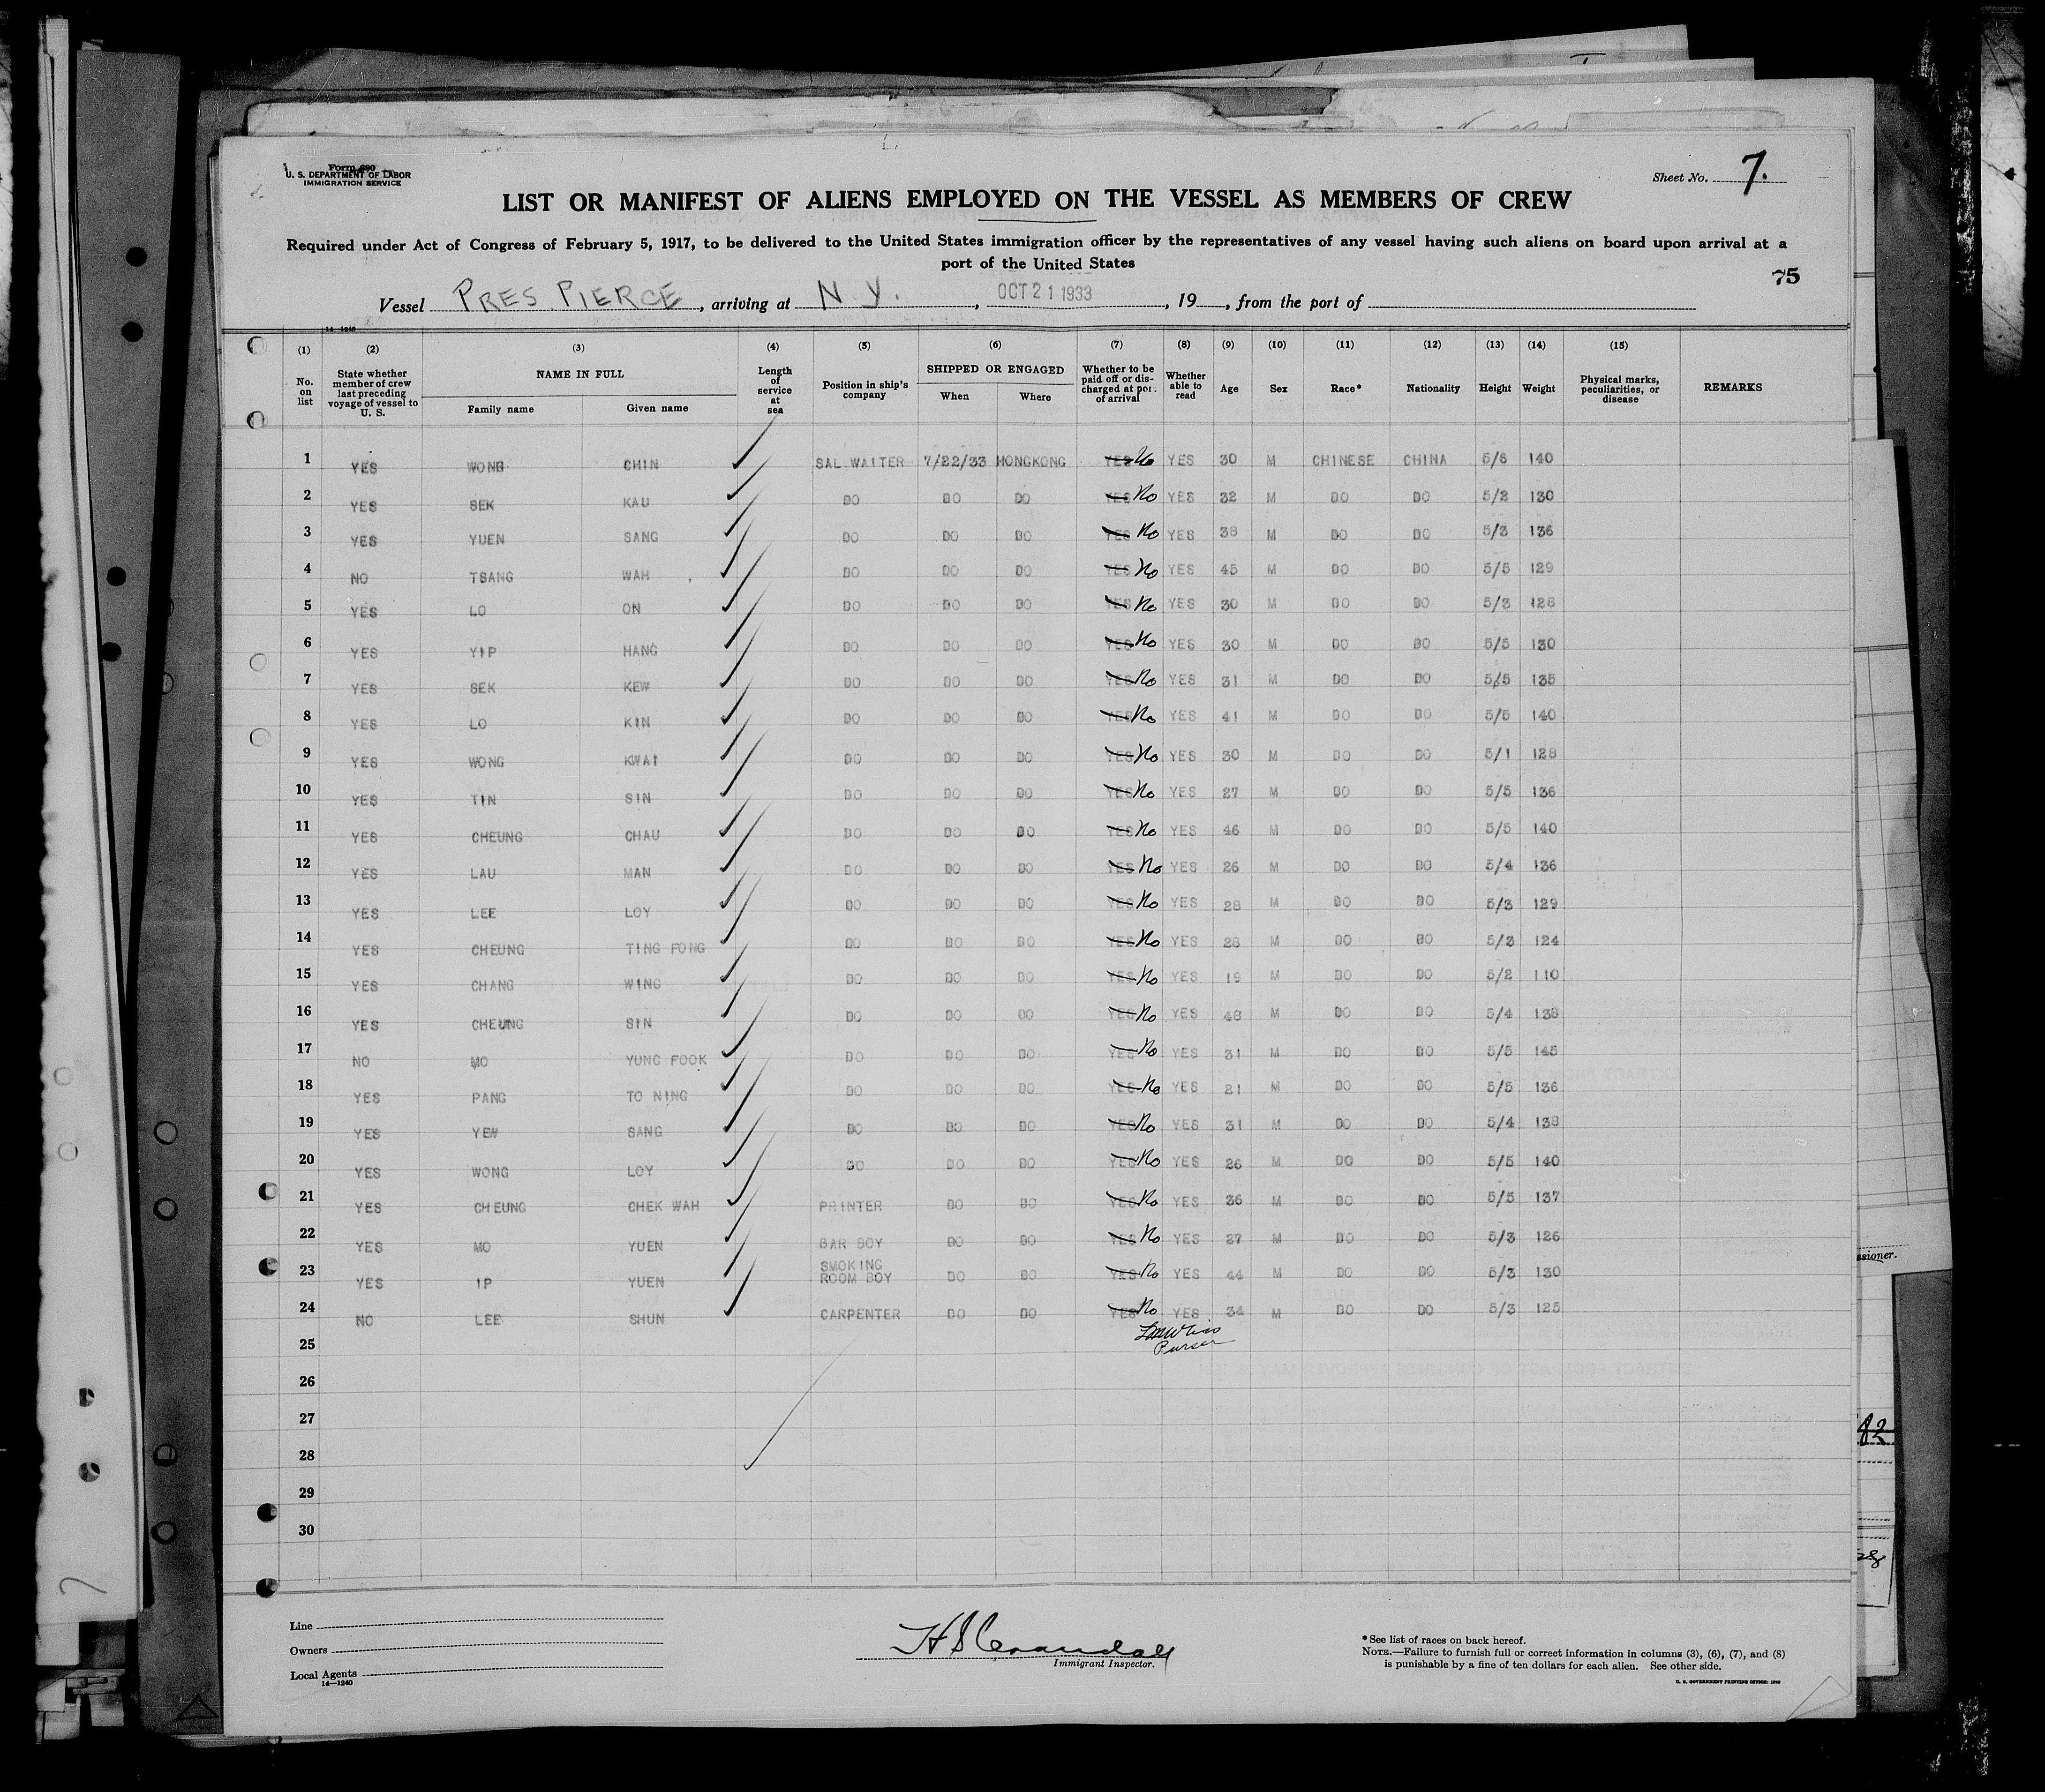 Form 680
U. S. DEPARTMENT OF LABOR
IMMIGRATION SERVICE
Sheet No. 7.
LIST OR MANIFEST OF ALIENS EMPLOYED ON THE VESSEL AS MEMBERS OF CREW
Required under Act of Congress of February 5, 1917, to be delivered to the United States immigration officer by the representatives of any vessel having such aliens on board upon arrival at a
port of the United States
75
Vessel PRES PIERCE, arriving at N Y., OCT 21 1933, 19, from the port of
14—1240
(1) (2) (3) (4) (5) (6) (7) (8) (9) (10) (11) (12) (13) (14) (15)
No. on list State whether member of crew last preceding voyage of vessel to U. S. NAME IN FULL Family name Given name Length of service at sea Position in ship's company SHIPPED OR ENGAGED When Where Whether to be paid off or discharged at port of arrival Whether able to read Age Sex Race* Nationality Height Weight Physical marks, peculiarities, or disease REMARKS
1 YES WONG CHIN SAL. WAITER 7/22/33 HONGKONG YES No YES 30 M CHINESE CHINA 5/6 140
2 YES SEK KAU DO DO DO YES No YES 32 M DO DO 5/2 130
3 YES YUEN SANG DO DO DO YES No YES 38 M DO DO 5/3 136
4 NO TSANG WAH DO DO DO YES No YES 45 M DO DO 5/5 129
5 YES LO ON DO DO DO YES No YES 30 M DO DO 5/3 128
6 YES YIP HANG DO DO DO YES No YES 30 M DO DO 5/5 130
7 YES SEK KEW DO DO DO YES No YES 31 M DO DO 5/5 135
8 YES LO KIN DO DO DO YES No YES 41 M DO DO 5/5 140
9 YES WONG KWAI DO DO DO YES No YES 30 M DO DO 5/1 128
10 YES TIN SIN DO DO DO YES No YES 27 M DO DO 5/5 136
11 YES CHEUNG CHAU DO DO DO YES No YES 46 M DO DO 5/5 140
12 YES LAU MAN DO DO DO YES No YES 26 M DO DO 5/4 136
13 YES LEE LOY DO DO DO YES No YES 28 M DO DO 5/3 129
14 YES CHEUNG TING FONG DO DO DO YES No YES 28 M DO DO 5/3 124
15 YES CHANG WING DO DO DO YES No YES 19 M DO DO 5/2 110
16 YES CHEUNG SIN DO DO DO YES No YES 48 M DO DO 5/4 138
17 NO MO YUNG FOOK DO DO DO YES No YES 31 M DO DO 5/5 145
18 YES PANG TO NING DO DO DO YES No YES 21 M DO DO 5/5 136
19 YES YEW SANG DO DO DO YES No YES 31 M DO DO 5/4 138
20 YES WONG LOY DO DO DO YES No YES 26 M DO DO 5/5 140
21 YES CHEUNG CHEK WAH PRINTER DO DO YES No YES 36 M DO DO 5/5 137
22 YES MO YUEN BAR BOY DO DO YES No YES 27 M DO DO 5/3 126
23 YES IP YUEN SMOKING ROOM BOY DO DO YES No YES 44 M DO DO 5/3 130
24 NO LEE SHUN CARPENTER DO DO YES No YES 34 M DO DO 5/3 125
25
Purser
26
27
28
29
30
Line
Owners
Local Agents
14—1240
H S Crandall
Immigrant Inspector.
*See list of races on back hereof.
NOTE.—Failure to furnish full or correct information in columns (3), (6), (7), and (8)
is punishable by a fine of ten dollars for each alien. See other side.
U. S. GOVERNMENT PRINTING OFFICE:
ssioner.
82